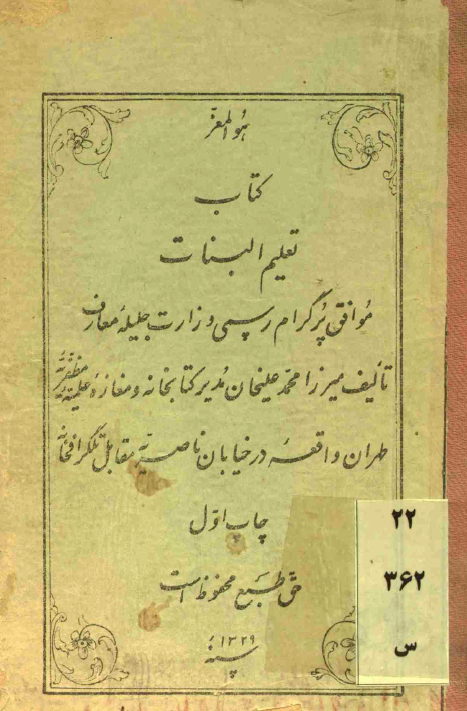 هو المعزّ
کتاب
تعلیم البنات
موافق پرگرام رسمی وزارت جلیلهٔ معارف
تألیف میرزا محمد علیخان مدیر کتابخانه و مغازهٔ علمیّهٔ مظفّریّه
طهران واقعه در خیابان ناصریّه مقابل تلگرافخانه
چاپ اوّل
حقّ طبع محفوظ است
سنهٔ ۱۳۲۹
۲۲
۳۶۲
س